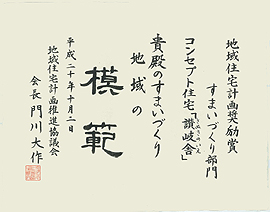 地域住宅計画奨励賞
すまいづくり部門
コンセプト住宅「讃岐舎」
さぬきのいえ
貴殿のすまいづくり
地域の
模範
平成二十年十月二日
地域住宅計画推進協議会
会長 門川大作